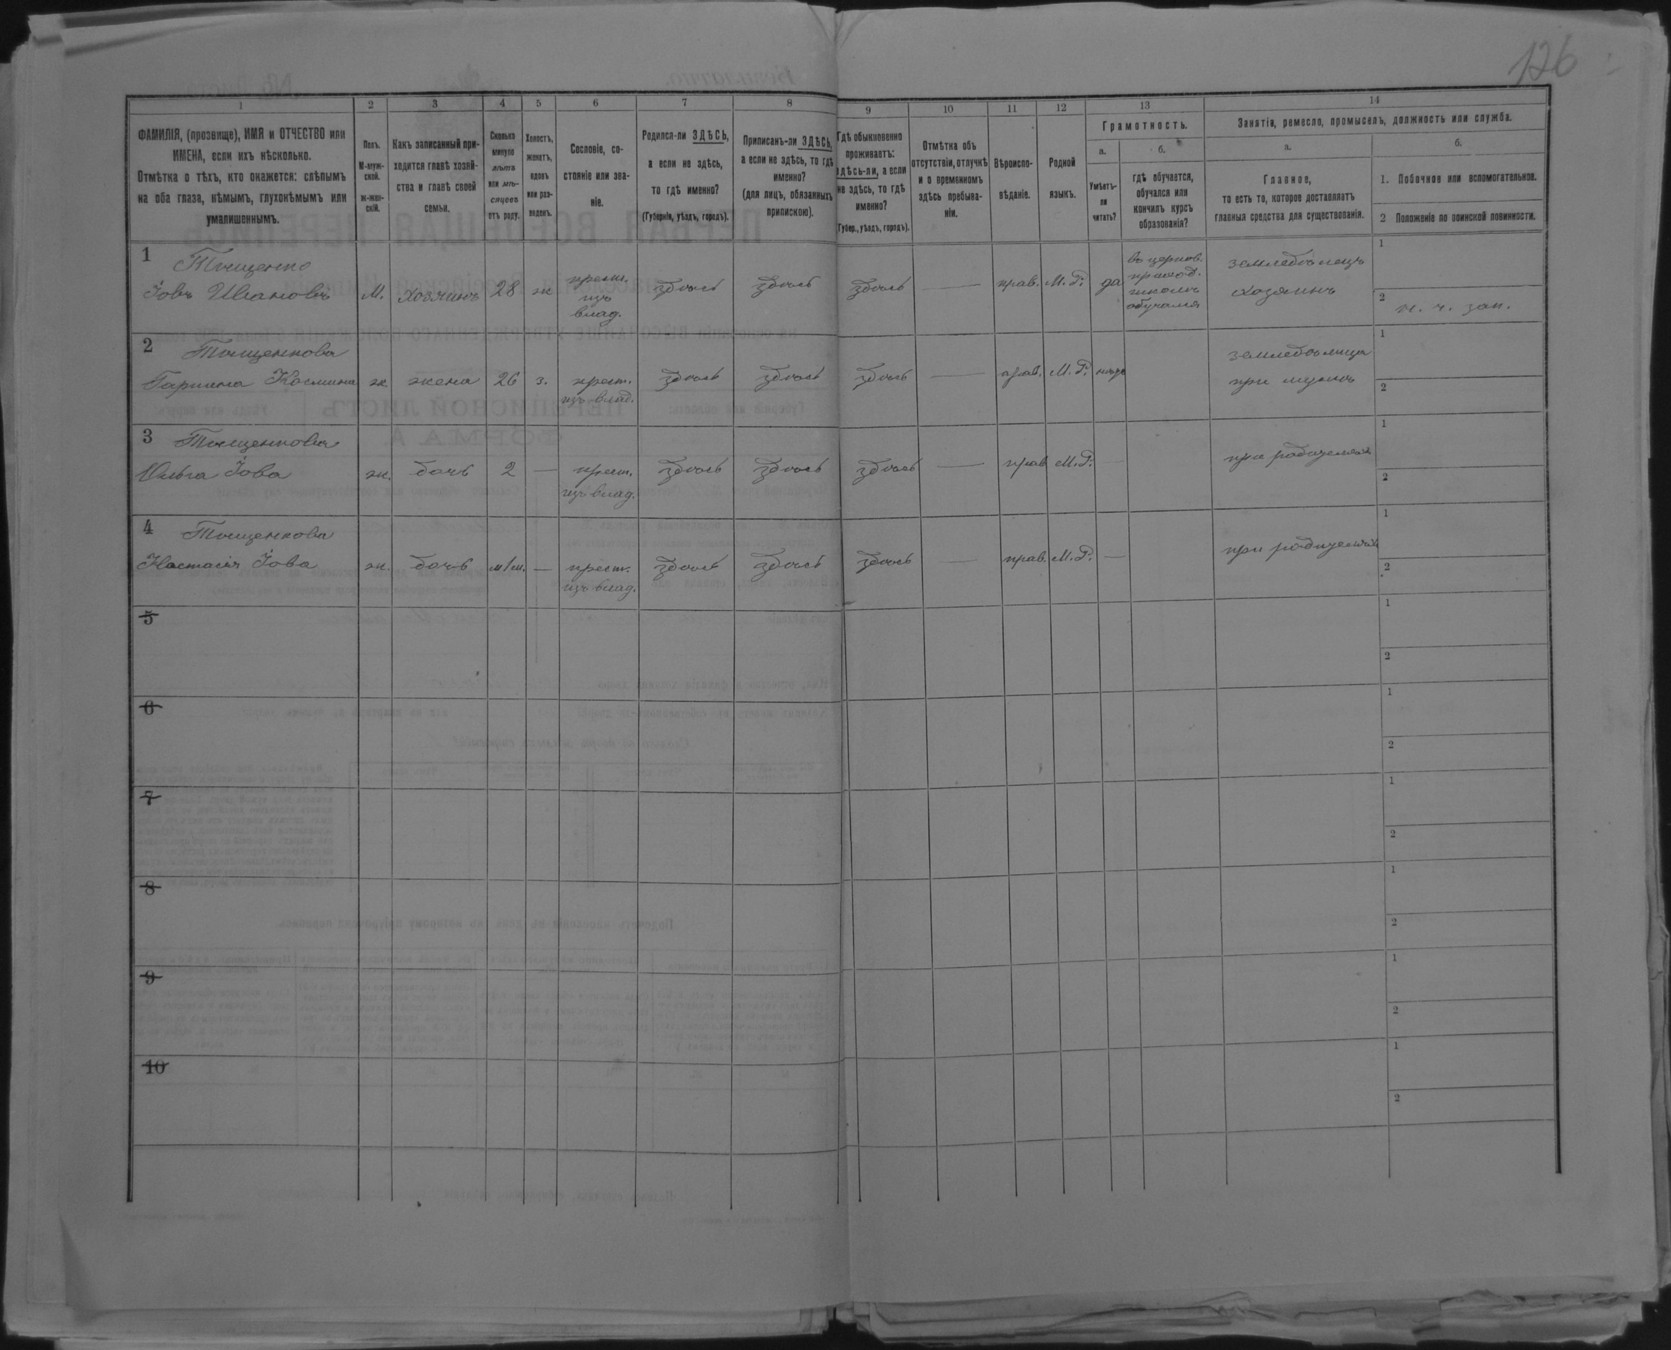 126
1 2 3 4 5 6 7 8 9 10 11 12 13 14
ФАМИЛІЯ, (прозвище), ИМЯ и ОТЧЕСТВО или
ИМЕНА, если ихъ нѣсколько.
Отмѣтка о тѣхъ, кто окажется: слѣпымъ
на оба глаза, нѣмымъ, глухонѣмымъ или
умалишеннымъ.
Полъ.
М-муж-
ской.
ж-жен-
скій.
Какъ записанный при-
ходится главѣ хозяй-
ства и главѣ своей
семьи.
Сколько
минуло
лѣтъ
или мѣ-
сяцевъ
отъ роду.
Холостъ,
женатъ,
вдовъ
или раз-
веденъ.
Сословіе, со-
стояніе или зва-
ніе.
Родился-ли ЗДѢСЬ,
а если не здѣсь,
то гдѣ именно?
(Губернія, уѣздъ, городъ).
Приписанъ-ли ЗДѢСЬ,
а если не здѣсь, то гдѣ
именно?
(для лицъ, обязанныхъ
припискою).
Гдѣ обыкновенно
проживаетъ:
здѣсь-ли, а если
не здѣсь, то гдѣ
именно?
(Губер., уѣздъ, городъ).
Отмѣтка объ
отсутствіи, отлучкѣ
и о временномъ
здѣсь пребыва-
ніи.
Вѣроиспо-
вѣданіе.
Родной
языкъ.
Грамотность.
а.
Умѣетъ-
ли
читать?
б.
гдѣ обучается,
обучался или
кончилъ курсъ
образованія?
Занятія, ремесло, промыселъ, должность или служба.
а.
Главное,
то есть то, которое доставляетъ
главныя средства для существованія.
б.
1. Побочное или вспомогательное.
2 Положеніе по воинской повинности.
1
Іовъ Ивановъ М. Хозяинъ 28 ж крест.
изъ
влад.
здѣсь здѣсь здѣсь — прав. М. Р. да
въ церков.
приход.
школѣ
обучался
земледѣлецъ
хозяинъ
1
2
2
Тищенкова
жена 26 з. крест.
изъ влад.
здѣсь здѣсь здѣсь — прав. М. Р. нѣтъ
при мужѣ
1
2
3 Тищенкова
Ольга Іова ж. дочь 2 — крест.
изъ влад.
здѣсь здѣсь здѣсь — прав. М. Р. —
при родителяхъ
1
2
4 Тищенкова
Настасія Іова ж. дочь — крест.
изъ влад.
здѣсь здѣсь здѣсь — прав. М. Р. —
при родителяхъ
1
2
5
1
2
6
1
2
7
1
2
8
1
2
9
1
2
10
1
2